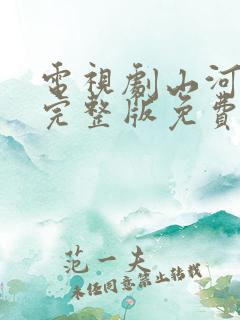 電視劇山河
完整版免費
范一夫
未經同意禁止轉載